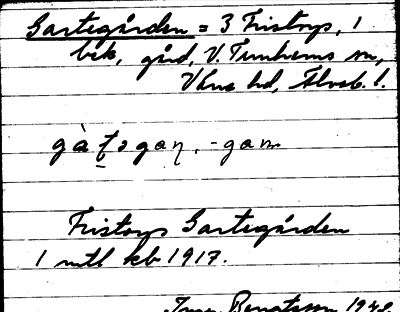 Gartegården = 3 Fristorp, 1
bek, gård, V. Tunhems sn,
Väne hd, Älvsb. l.
gàt̠əgaɳ, -gam
Fristorp Gartegården
1 mtl kb 1917.
Bengtsson 1942.